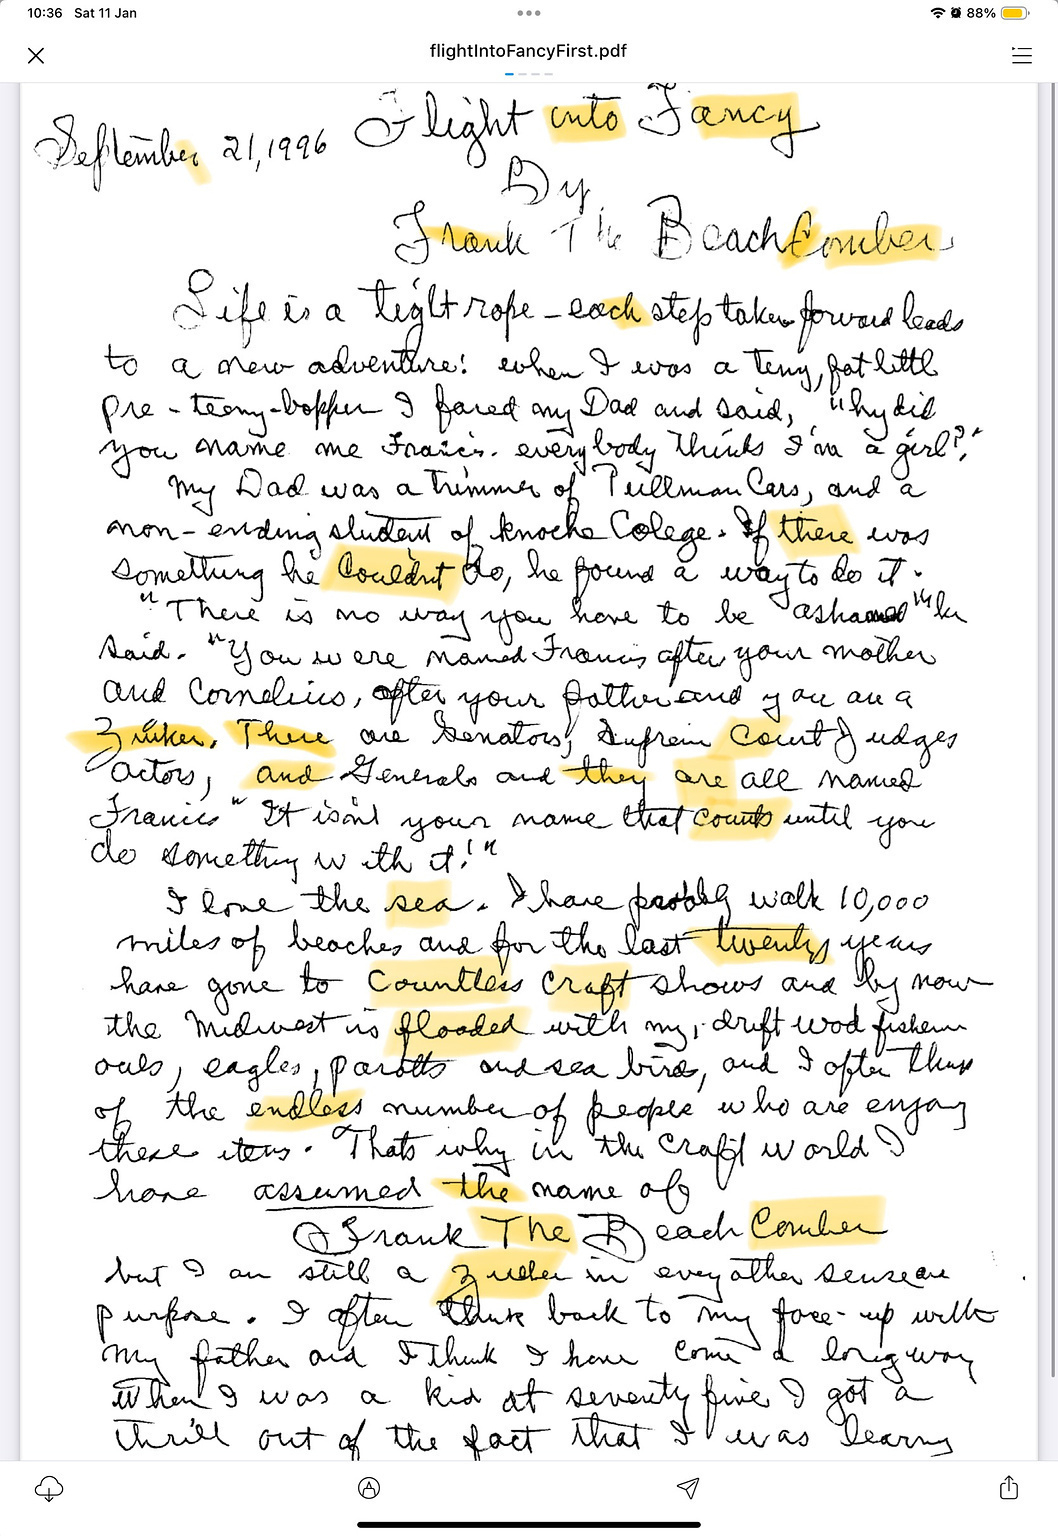 10:36 Sat 11 Jan
88%
flightIntoFancyFirst.pdf
Flight into Fancy
September 21, 1996
By
Frank The BeachComber
Life is a tight rope - each step taken forward leads
to a new adventure! when I was a teny, fat littl
pre-teeny-bopper I faced my Dad and said, "why did
you name me Francis. everybody thinks I'm a girl?"
My Dad was a trimmer of Pullman Cars, and a
non-ending student of Knocks Colege. If there was
something he Couldn't do, he found a way to do it.
"There is no way you have to be ashamed" he
said. "You were named Francis after your mother
and Cornelius, after your father and you are a
Zuker. There are Senators, Suprem Court Judges
actors, and Generals and they are all named
Francis" It isn't your name that counts until you
do something with it!"
I love the sea. I have probbly walk 10,000
miles of beaches and for the last twenty years
have gone to Countless Craft shows and by now
the Midwest is flooded with my, drift wod fishem
owls, eagles, parotts and sea birds, and I often think
of the endless number of people who are enjoy
these items. Thats why in the Craft world I
have assumed the name of
Frank The BeachComber
but I am still a in every other sense
purpose. I often think back to my face-up with
my father and I Think I have come a long way
When I was a kid at seventy five I got a
thrill out of the fact that I was learny